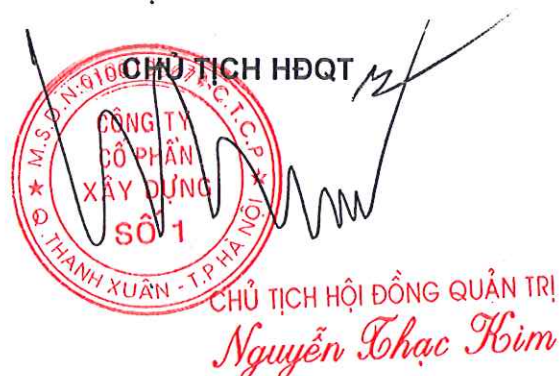 CHỦ TỊCH HĐQT
M.S.D.N:0100 C.T.C.P
CÔNG TY
CỔ PHẦN
XÂY DỰNG
SỐ 1
Q. THANH XUÂN - T.P HÀ NỘI
CHỦ TỊCH HỘI ĐỒNG QUẢN TRỊ
Nguyễn Khạc Kim